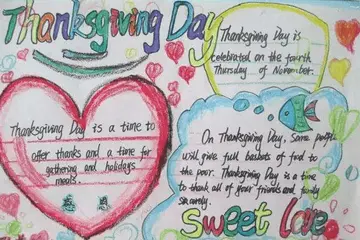 Thanksgiving Day
Thanksgiving Day is
celebrated on the fourth
Thursday of November.
Thanksgiving Day is a time to
offer thanks and a time for
gathering and holidays
meals.
On Thanksgiving Day, some people
will give full baskets of food to
the poor. Thanksgiving Day is a time
to thank all of your friends and family
sincerely.
Sweet Love